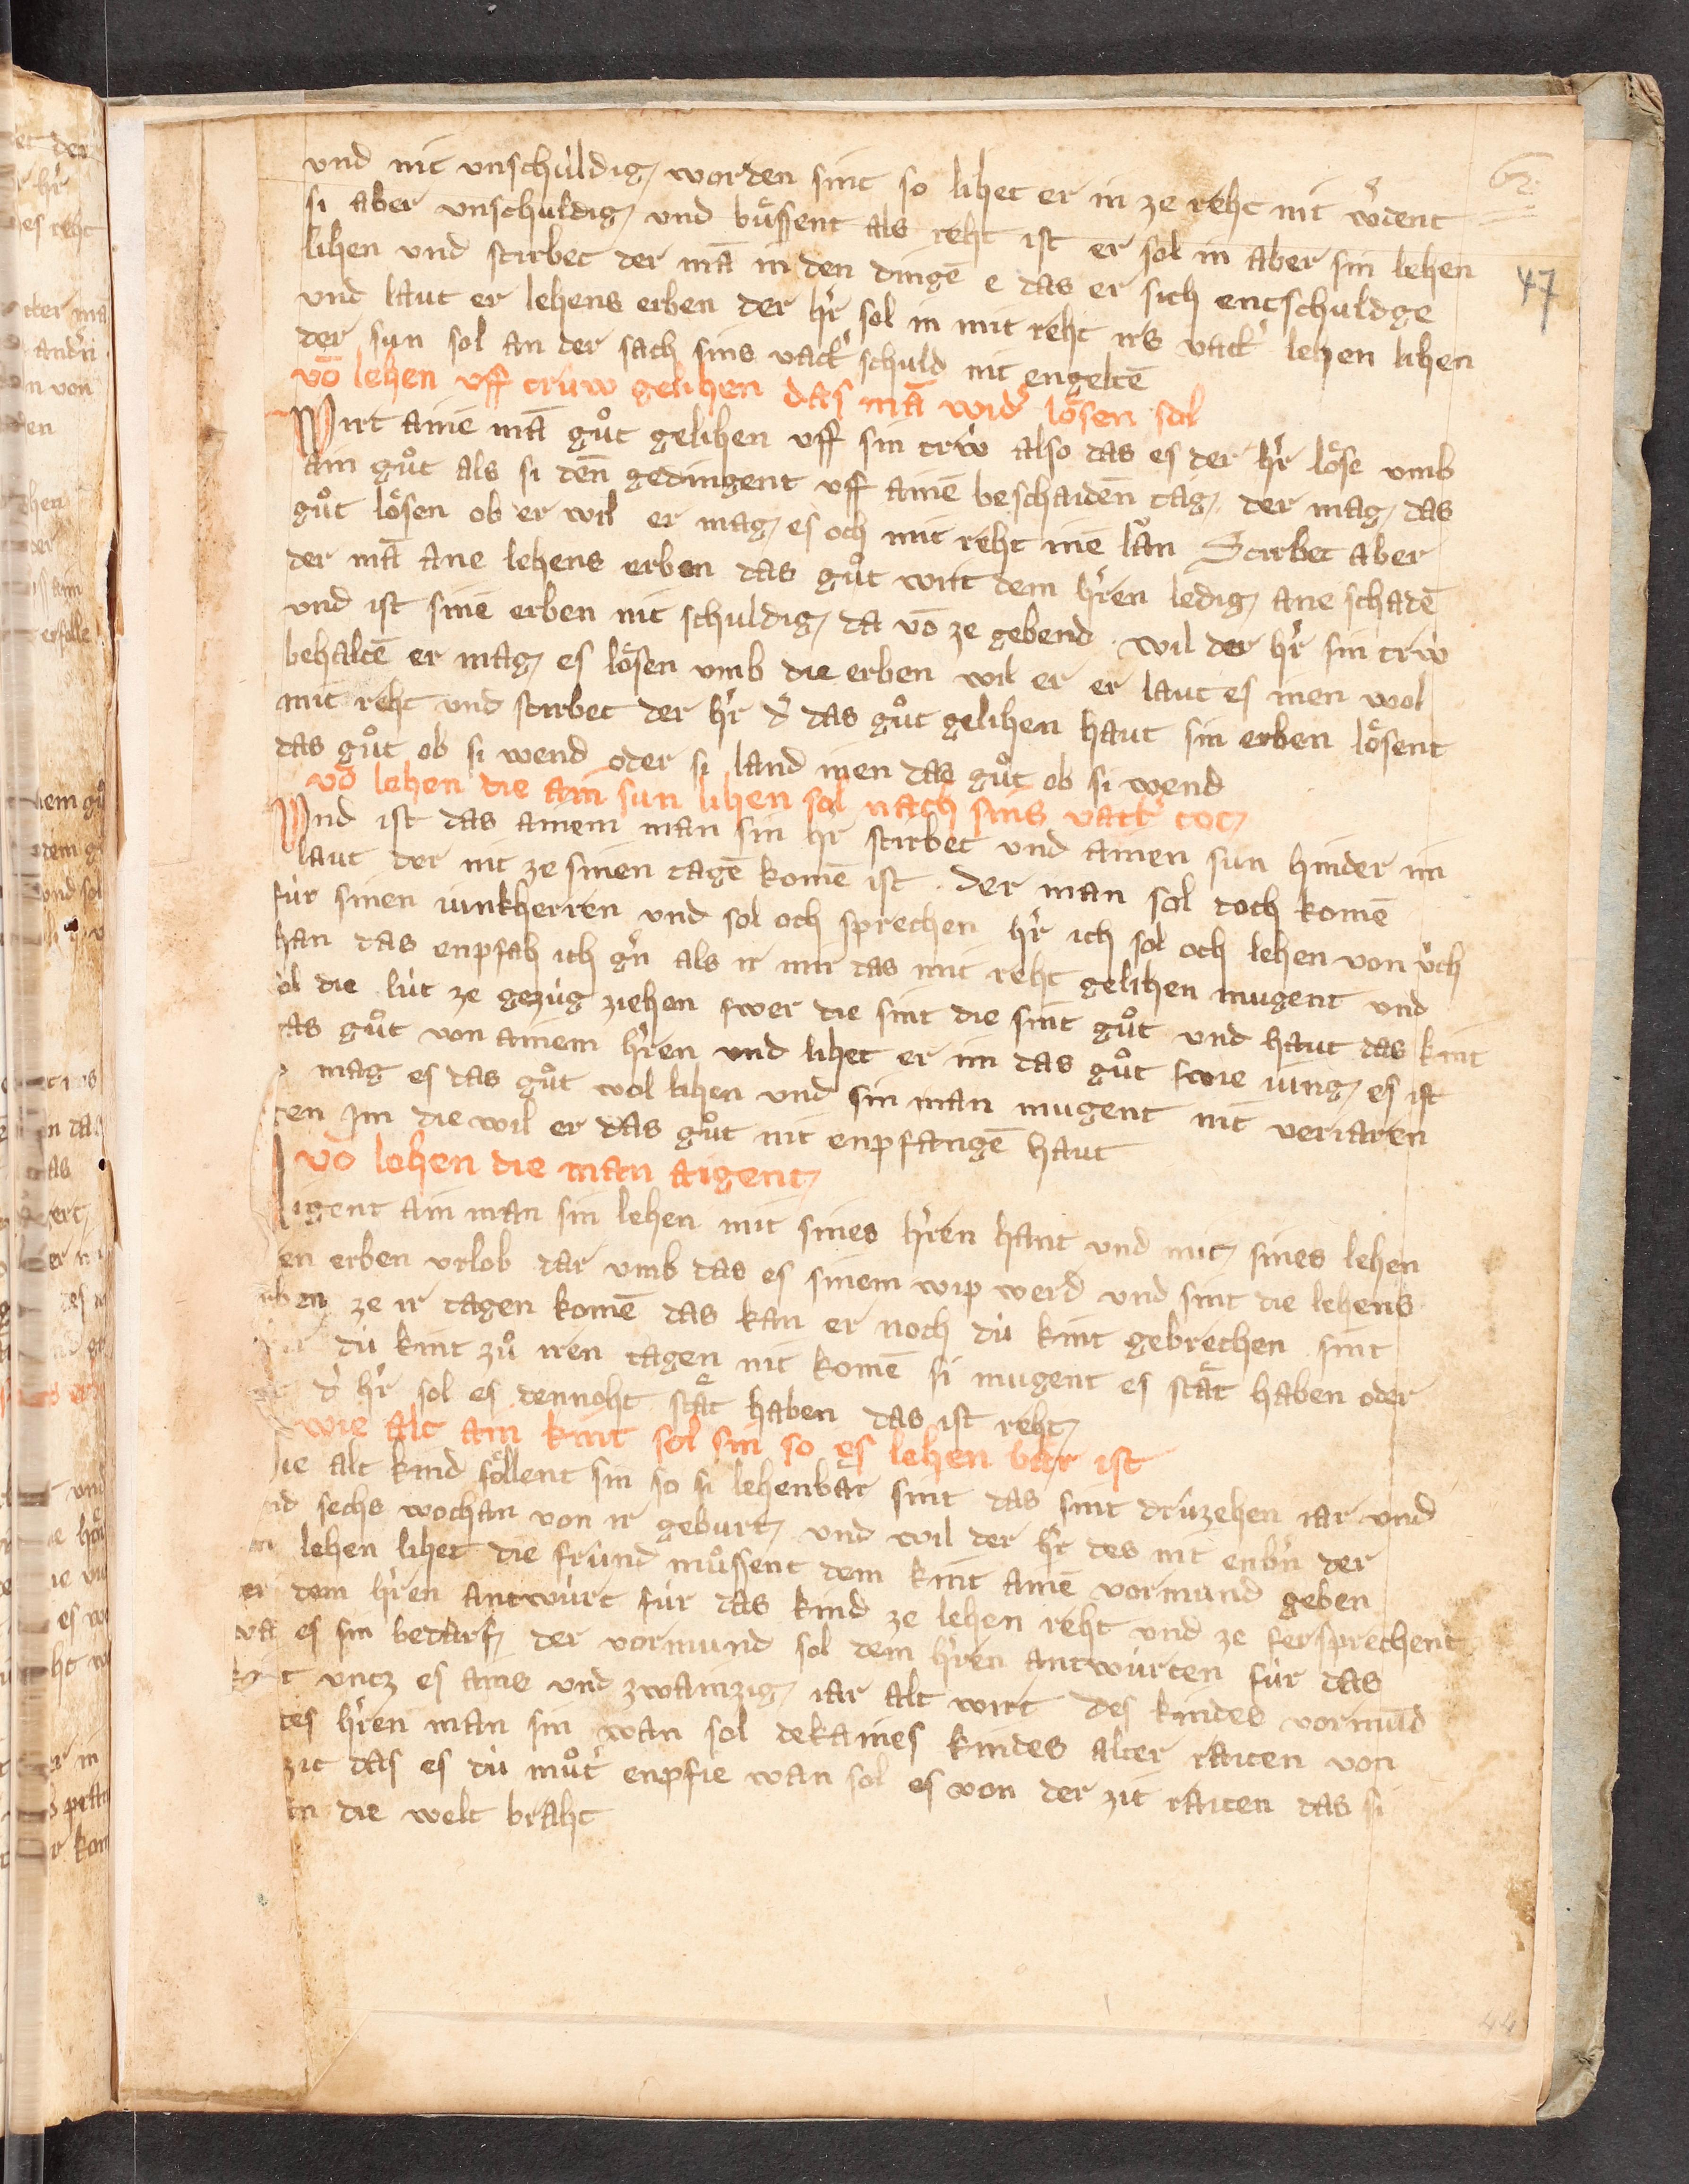 und nit unschuldig worden sint so lihet er in ze reht nit wͦdent
si aber unschuldig und bůssent als reht ist er sol in aber sin lehen
lihen und stirbet der mā in den dingē e das er sich entschuldge
und laut er lehens erben der hr̄ sol in mit reht irs vatt' lehen lihen
der sun sol an der sach sins vatt' schuld nit engeltē
vō lehen uff trúw gelihen das mā wid' loͤsen sol
Wirt ainē mā gůt gelihen uff sin trẃ also das es der hr̄ loͤse umb
ain gůt als si denn gedingent uff ainē beschaidenn tag der mag das
gůt loͤsen ob er wil er mag es och mit reht inē lān Stirbet aber
der mā ane lehens erben das gůt wirt dem hr̄en ledig ane schadē
und ist sinē erben nit schuldig da vō ze gebend wil der hr̄ sin trẃ
behaltē er mag es loͤsen umb die erben wil er er laut es inen wol
mit reht und stirbet der hr̄ d' das gůt gelihen haut sin erben loͤsent
das gůt ob si wend oder si land inen das gůt ob si wend
vō lehen die ain sun lihen sol nach sins vatt' tot
Und ist das ainem man sin hr̄ stirbet und ainen sun hinder im
laut der nit ze sinen tagē komē ist der man sol doch komē
fúr sinen iunkherren und sol och sprechen hr̄ ich sol och lehen von úch
han das enpfah ich g'n als ir mir das mit reht gelihen mugent und
ol die lút ze gezúg ziehen swer die sint die sint gůt und haut das kint
as gůt von ainem hr̄en und lihet er im das gůt swie iung es ist
mag es das gůt wol lihen und sin man mugent nit veriaren
ren im die wil er das gůt nit enpfangē haut
vō lehen die man aigent
igent ain man sin lehen mit sines hr̄en hant und mit sines lehen
en erben urlob dar umb das es sinem wip werd und sint die lehens
rben ze ir tagen komē das kan er noch dú kint gebrechen sint
dú kint zů iren tagen nit komē si mugent es staͤt haben oder
d' hr̄ sol es dennoht staͤt haben das ist reht
wie alt ain kint sol sin so es lehen bar ist
ie alt kind soͤllent sin so si lehenbar sint das sint drúzehen iar und
nd sechs wochan von ir geburt und wil der hr̄ des nit enb'n der
lehen lihet die frúnd můssent dem kint ainē vormund geben
er dem hr̄en antwúrt fúr das kind ze lehen reht und ze fersprechent
wa es sin bedarf der vormund sol dem hr̄en antwúrten fúr das
kint untz es ains und zwainzig iar alt wirt des kindes vormūd
des hr̄en man sin wan sol dekaines kindes alter raiten von
zit das es dú můt' enpfie wan sol es von der zit raiten das si
in die welt braht
47
44